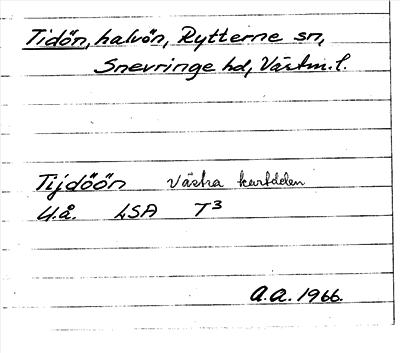 Tidön, halvön, Rytterne sn,
Snevringe hd, Västm. l.
Tijdöön Västra kartdelen
U.å. LSA T3
A.A. 1966.